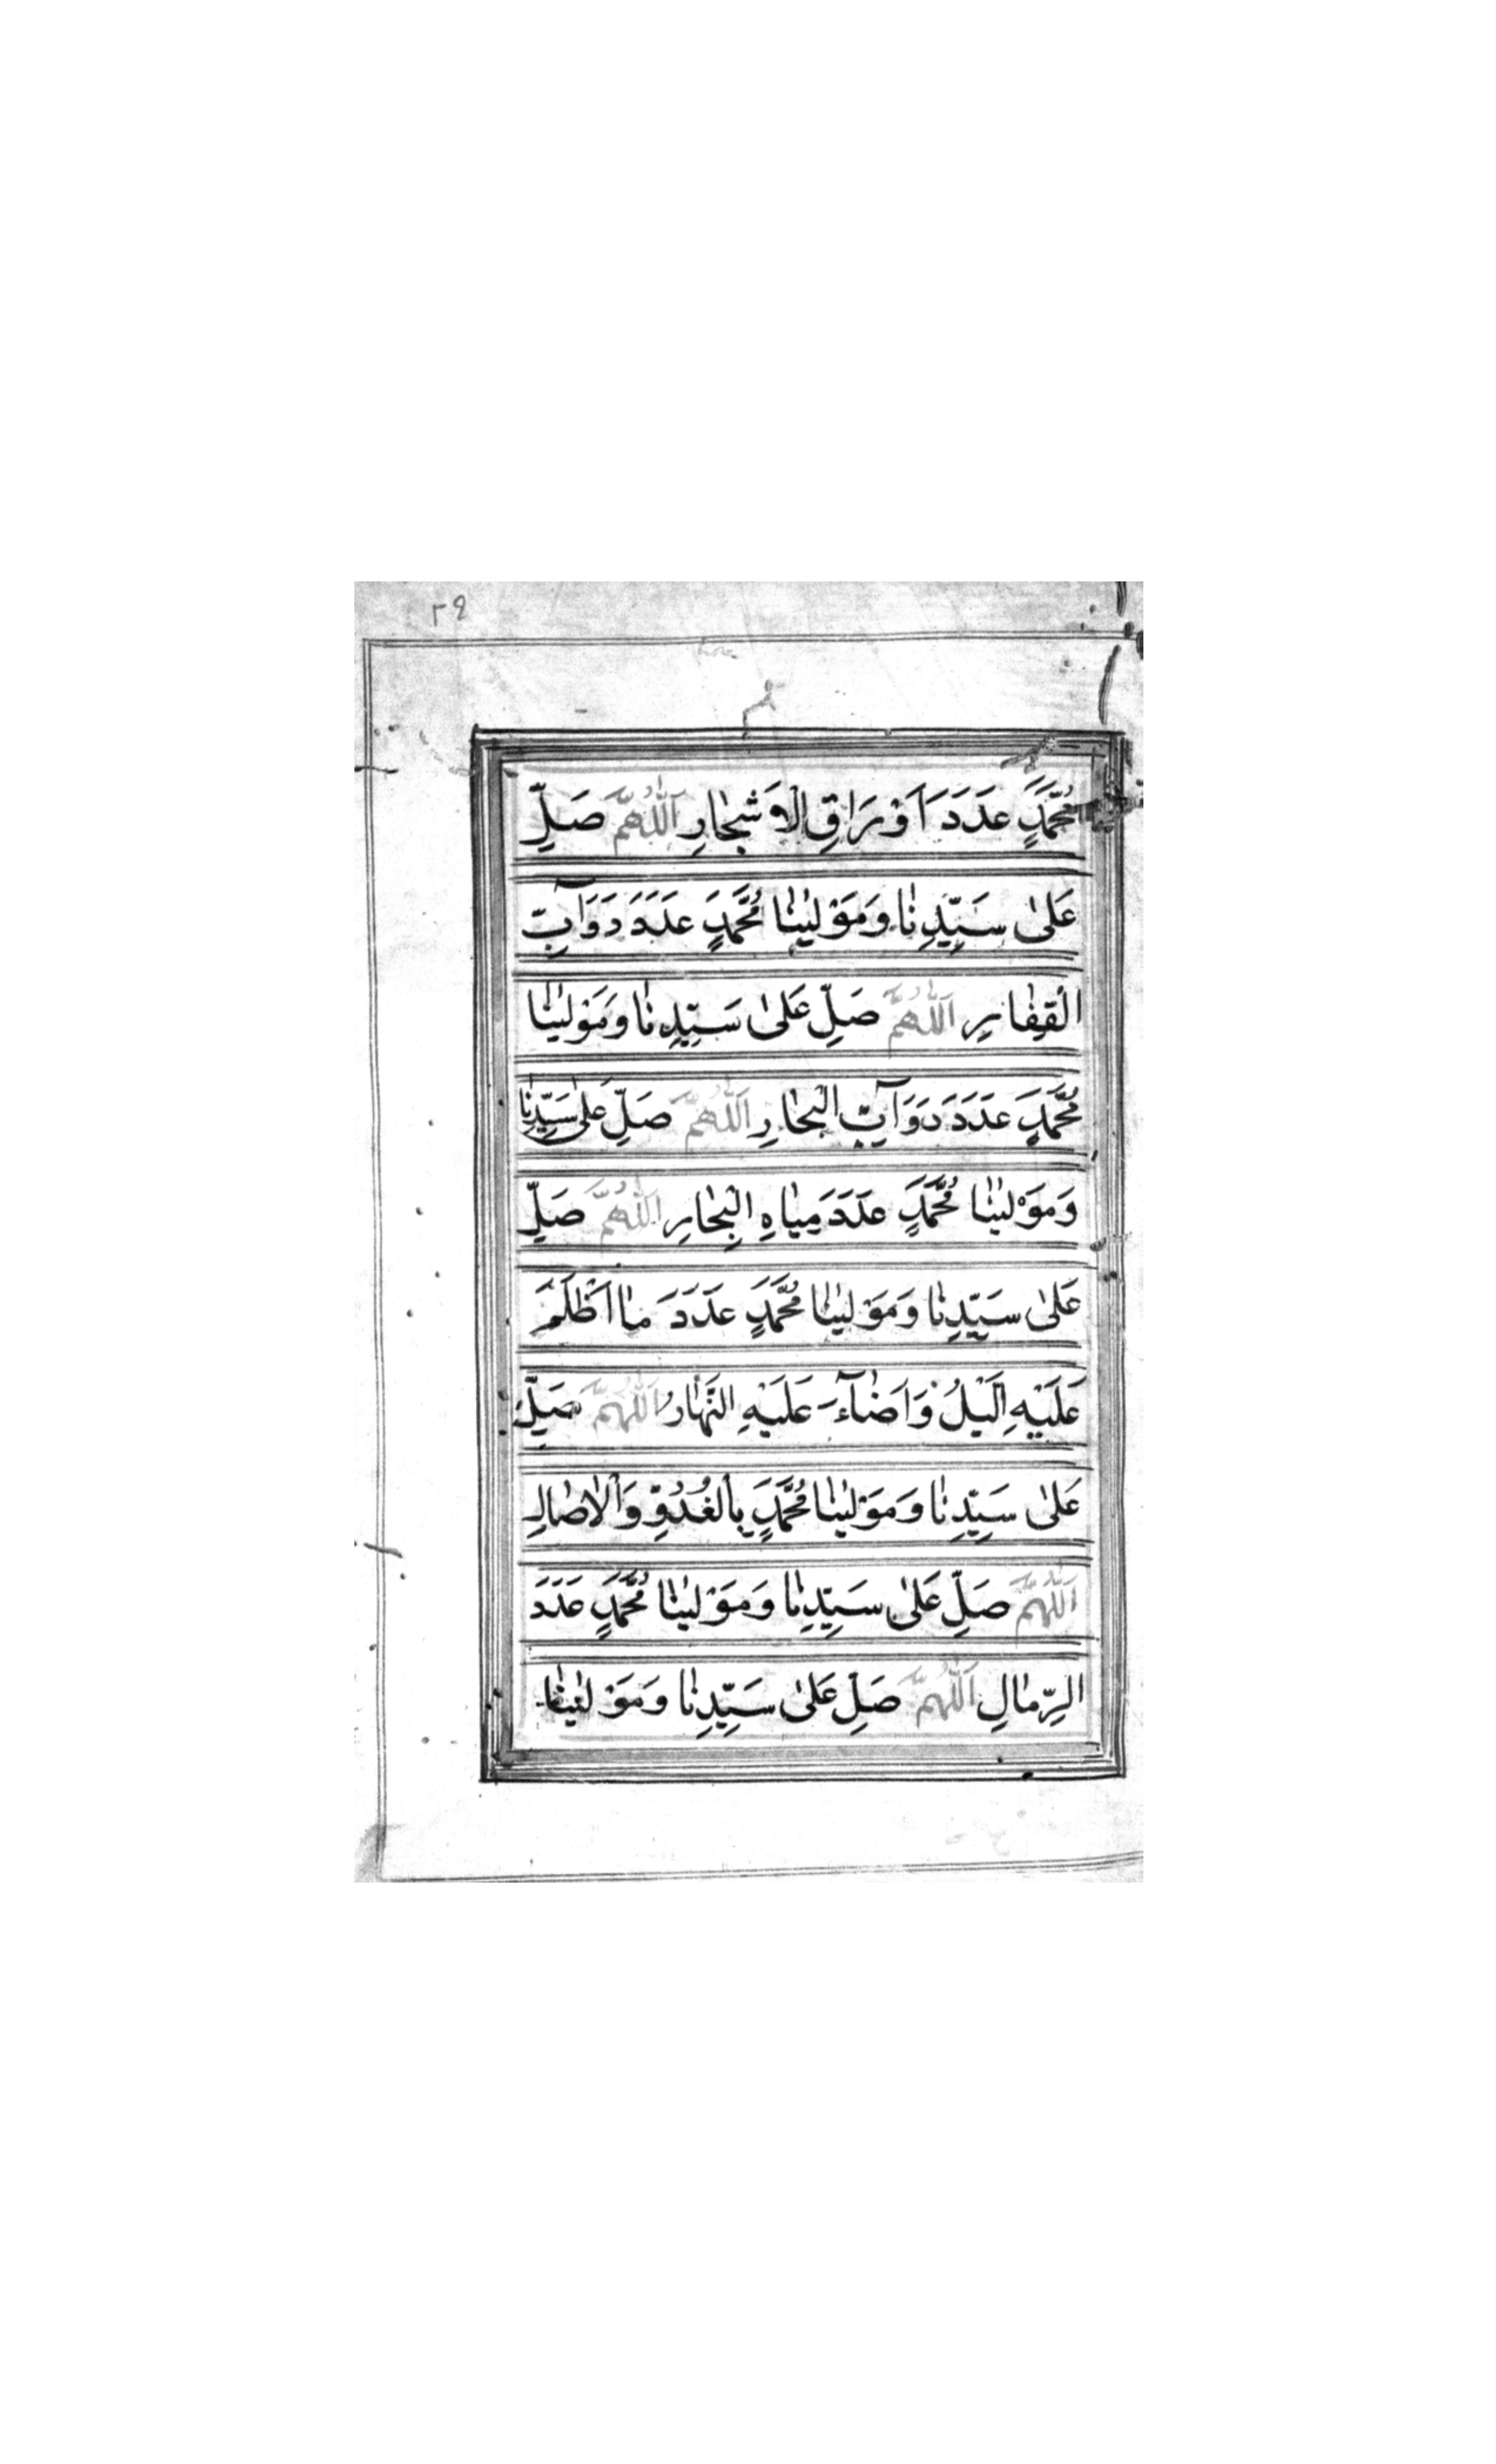 ٢٩
مُحَمَّدٍ عَدَدَ اَوْرَاقِ الْاَشْجٰارِ اَللّٰهُمَّ صَلِّ
عَلٰى سَيِّدِنٰا وَمَوْلٰينٰا مُحَمَّدٍ عَدَدَ دَوَآبِّ
الْقِفٰارِ اَللّٰهُمَّ صَلِّ عَلٰى سَيِّدِنٰا وَمَوْلٰينٰا
مُحَمَّدٍ عَدَدَ دَوَآبِّ الْبِحٰارِ اَللّٰهُمَّ صَلِّ عَلٰى سَيِّدِنٰا
وَمَوْلٰينٰا مُحَمَّدٍ عَدَدَ مِيٰاهِ الْبِحٰارِ اَللّٰهُمَّ صَلِّ
عَلٰى سَيِّدِنٰا وَمَوْلٰينٰا مُحَمَّدٍ عَدَدَ مٰا اَظْلَمَ
عَلَيْهِ الَّيْلُ وَاَضٰآءَ عَلَيْهِ النَّهٰارُ اَللّٰهُمَّ صَلِّ
عَلٰى سَيِّدِنٰا وَمَوْلٰينٰا مُحَمَّدٍ بِالْغُدُوِّ وَالْاٰصٰالِ
اَللّٰهُمَّ صَلِّ عَلٰى سَيِّدِنٰا وَمَوْلٰينٰا مُحَمَّدٍ عَدَدَ
الرِّمٰالِ اَللّٰهُمَّ صَلِّ عَلٰى سَيِّدِنٰا وَمَوْلٰينٰا